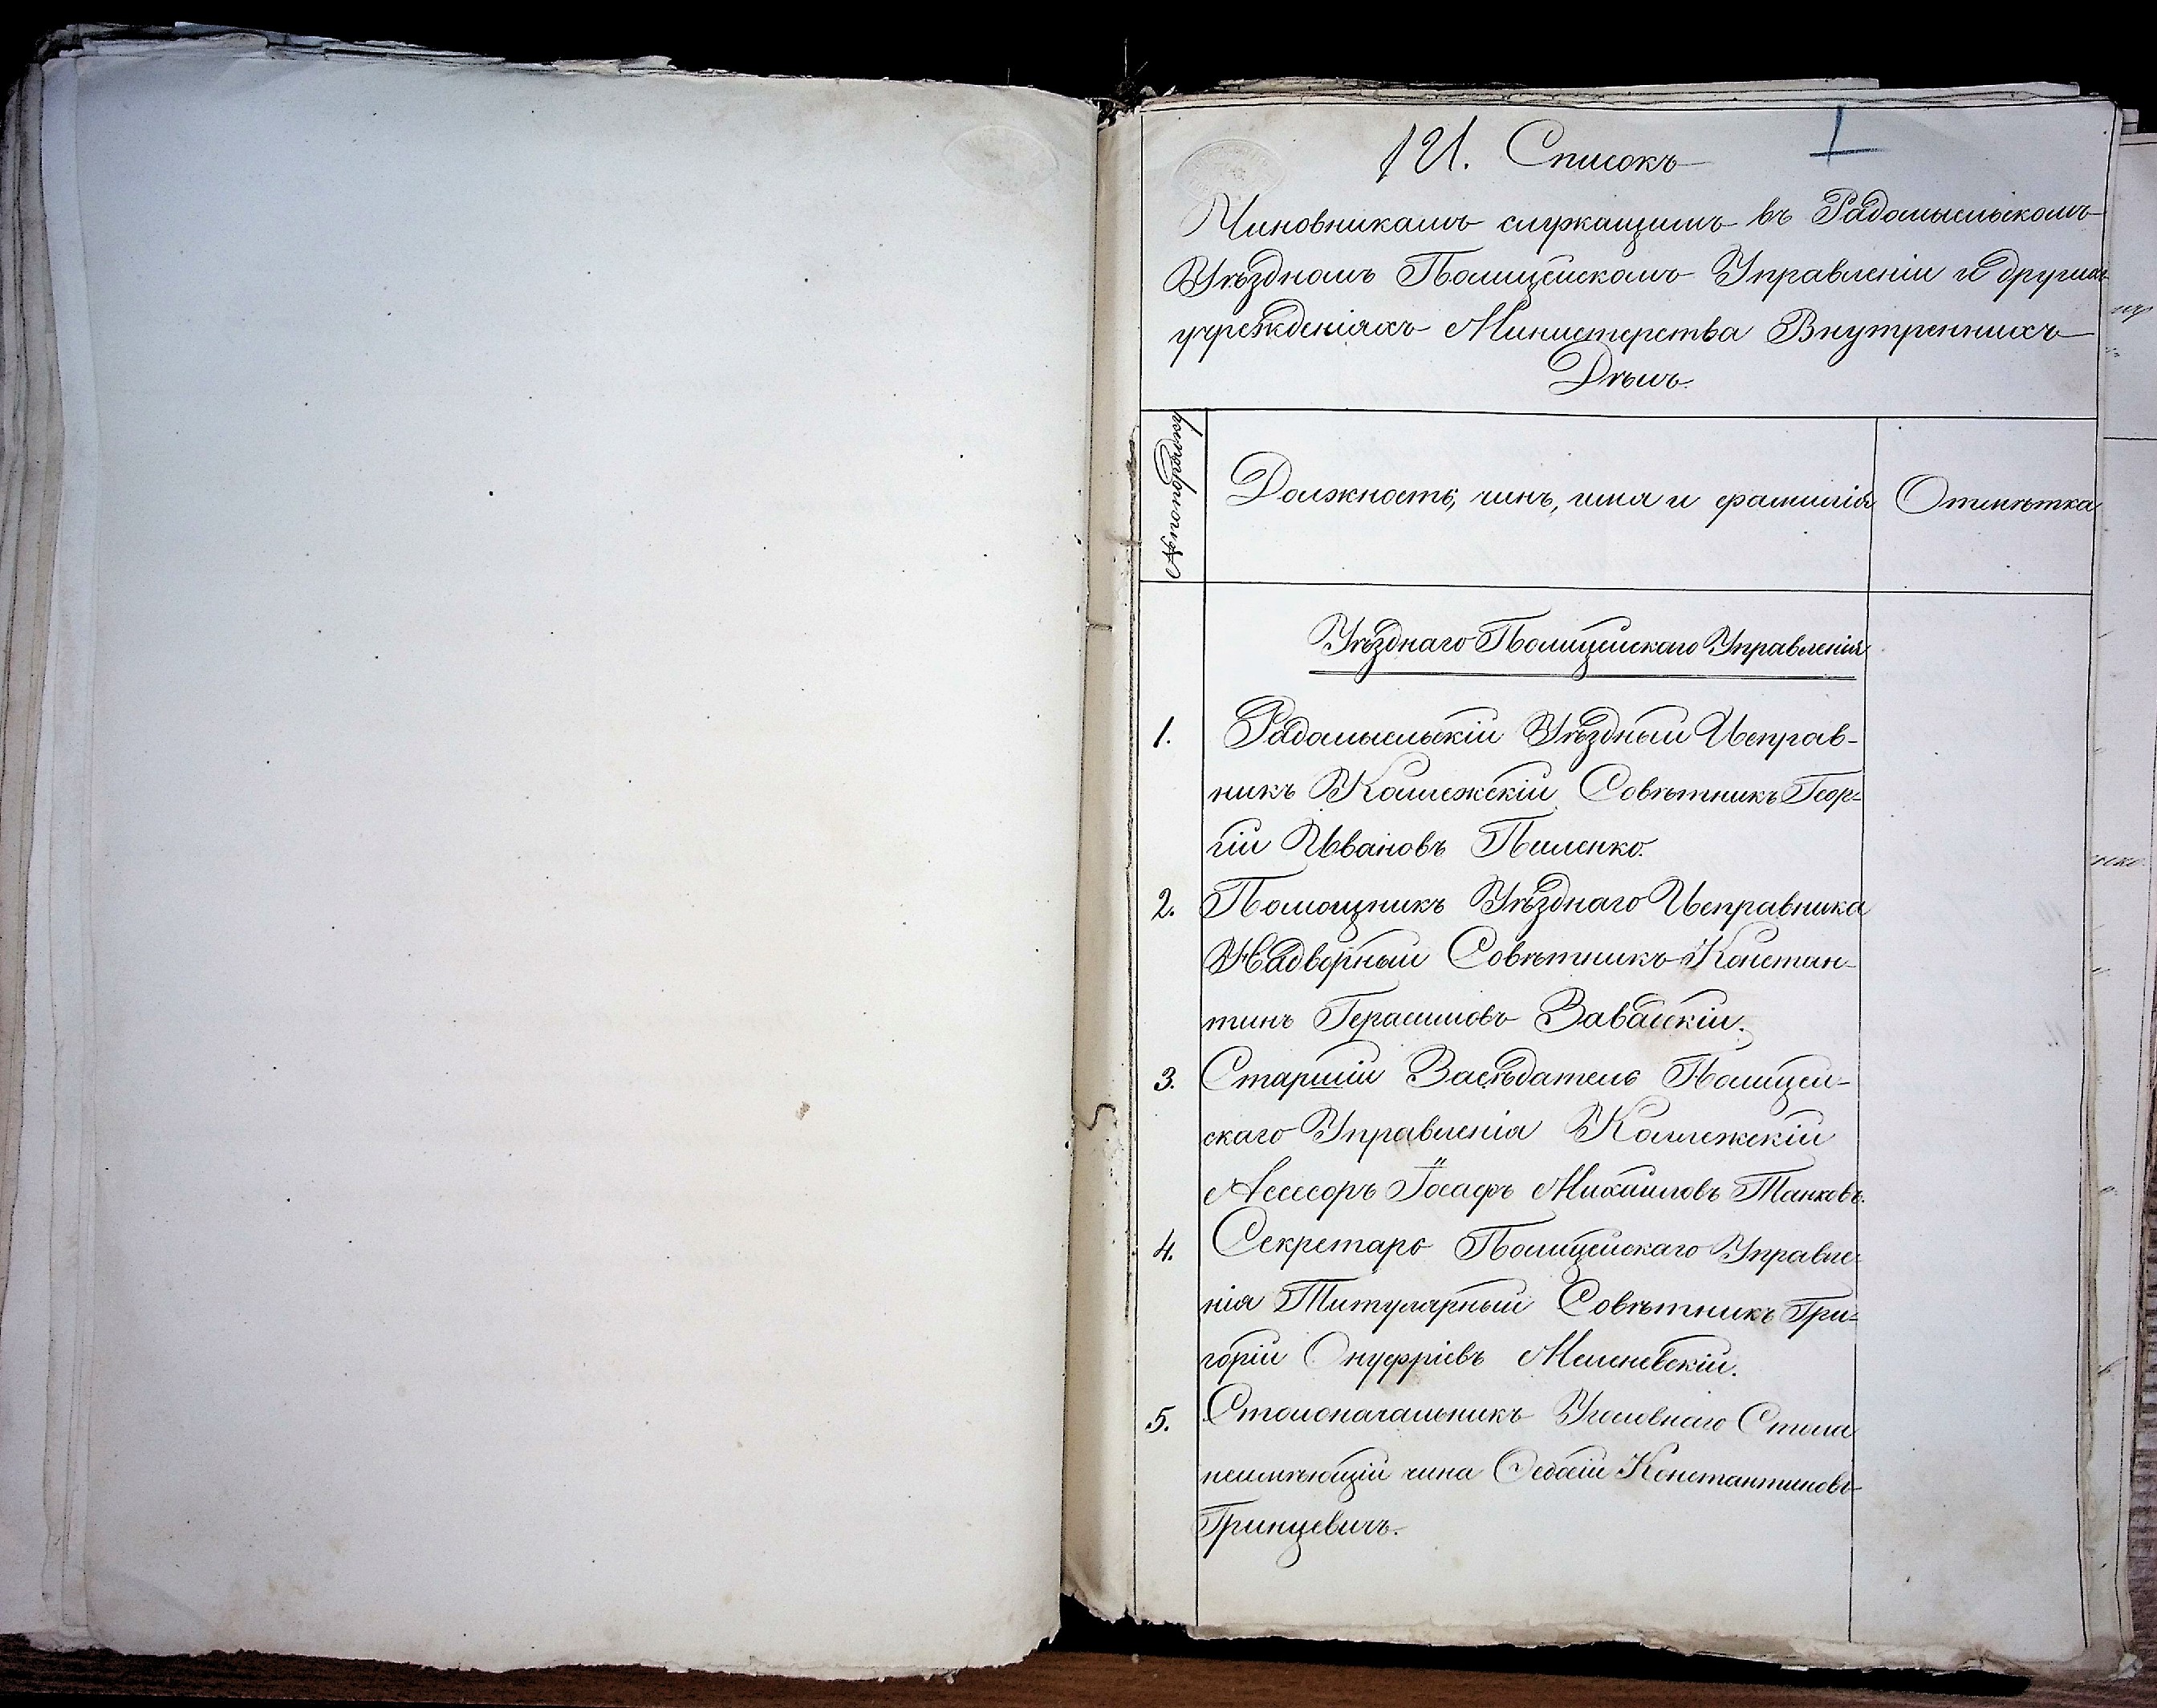 121. Списокъ
1
Чиновникамъ служащимъ въ Радомысльскомъ
Уѣздномъ Полицейскомъ Управленіи и другихъ
учрежденіяхъ Министерства Внутреннихъ
Дѣлъ.
Должность, чинъ, имя и фамилія
Отмѣтка
Уѣзднаго Полицейскаго Управленія
1. Радомысльскій Уѣздный Исправ-
никъ Коллежскій Совѣтникъ Геор-
гій Ивановъ Пиленко.
2. Помощникъ Уѣзднаго Исправника
Надворный Совѣтникъ Констан-
тинъ Герасимовъ Завайскій.
3. Старшій Засѣдатель Полицей-
скаго Управленія Коллежскій
Ассесоръ Іосафъ Михайловъ Танковъ.
4. Секретарь Полицейскаго Управле-
нія Титулярный Совѣтникъ Гри-
горій Онуфріевъ Меленевскій.
5. Столоначальникъ Уголовнаго Стола
неимѣющій чина Федосій Константиновъ
Гринцевичъ.